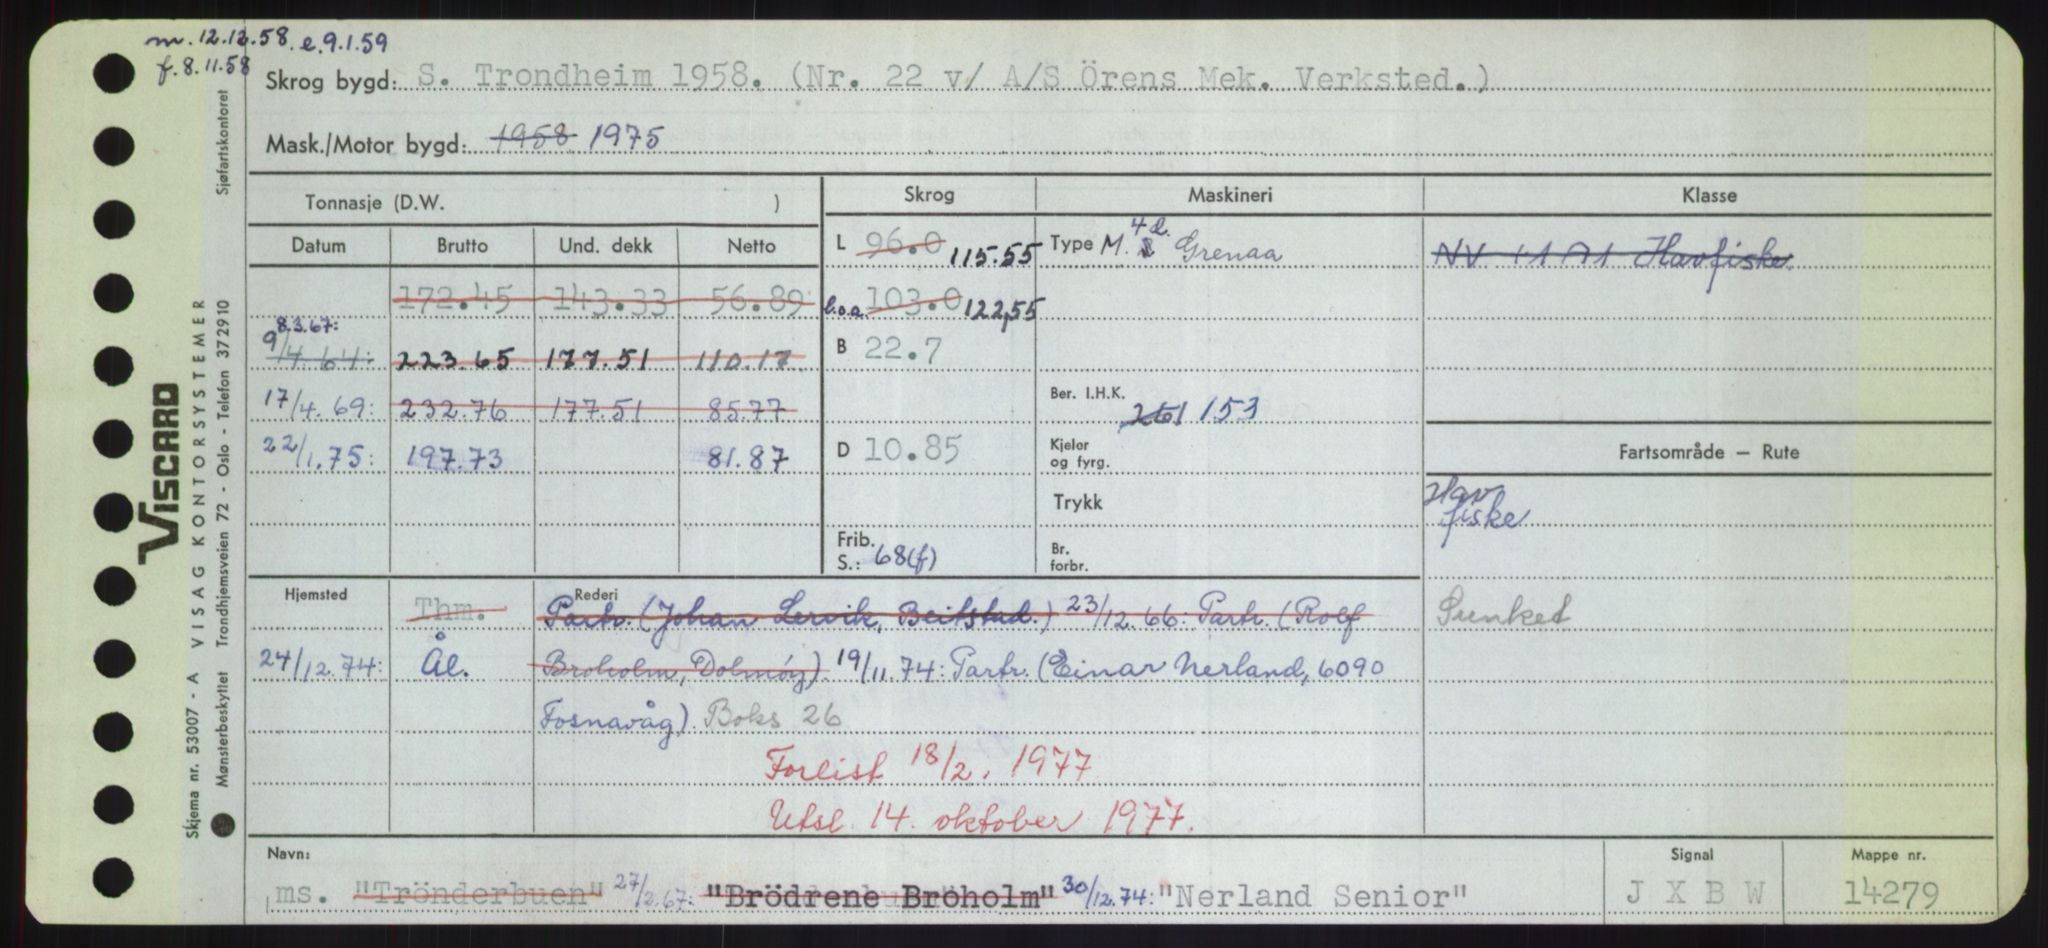 m. 12.12.58. e. 9.1.59
f. 8.11.58
Skrog bygd: S. Trondheim 1958. (Nr. 22 v/ A/S Örens Mek. Verksted.)
Mask./Motor bygd: 1958 1975
Tonnasje (D.W. )
Skrog
Maskineri
Klasse
Datum Brutto Und. dekk Netto
L 96.0 115.55
Type M. 4 d. Grenaa
NV +1A1 Havfiske.
172.45 143.33 56.89
l.o.a. 103.0 122,55
8.3.67:
9/4.64: 223.65 177.51 110.17
B 22.7
17/4.69: 232.76 177.51 85.77
Ber. I.H.K. 261 153
22/1.75: 197.73 81.87
D 10.85
Kjeler
og fyrg.
Fartsområde — Rute
Trykk
Hav
fiske
Frib.
S.: 68(f)
Br.
forbr.
Hjemsted Thm.
Rederi
Partr. (Johan Lervik, Beitstad.) 23/12.66: Partr. (Rolf
Sunket
24/12.74: Ål.
Broholm, Dolmøy). 19/11.74: Partr. (Einar Nerland, 6090
Fosnavåg). Boks 26
Forlist 18/2. 1977
Utsl. 14. oktober 1977.
Navn:
ms. "Trönderbuen" 27/2.67: "Brödrene Bröholm" 30/12.74: "Nerland Senior"
Signal
J X B W
Mappe nr.
14279
VISCARD
Skjema nr. 53007 - A VISAG KONTORSYSTEMER
Mønsterbeskyttet Trondhjemsveien 72 - Oslo - Telefon 372910
Sjøfartskontoret